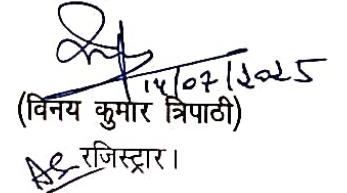 14/07/2025
(विनय कुमार त्रिपाठी)
रजिस्ट्रार।